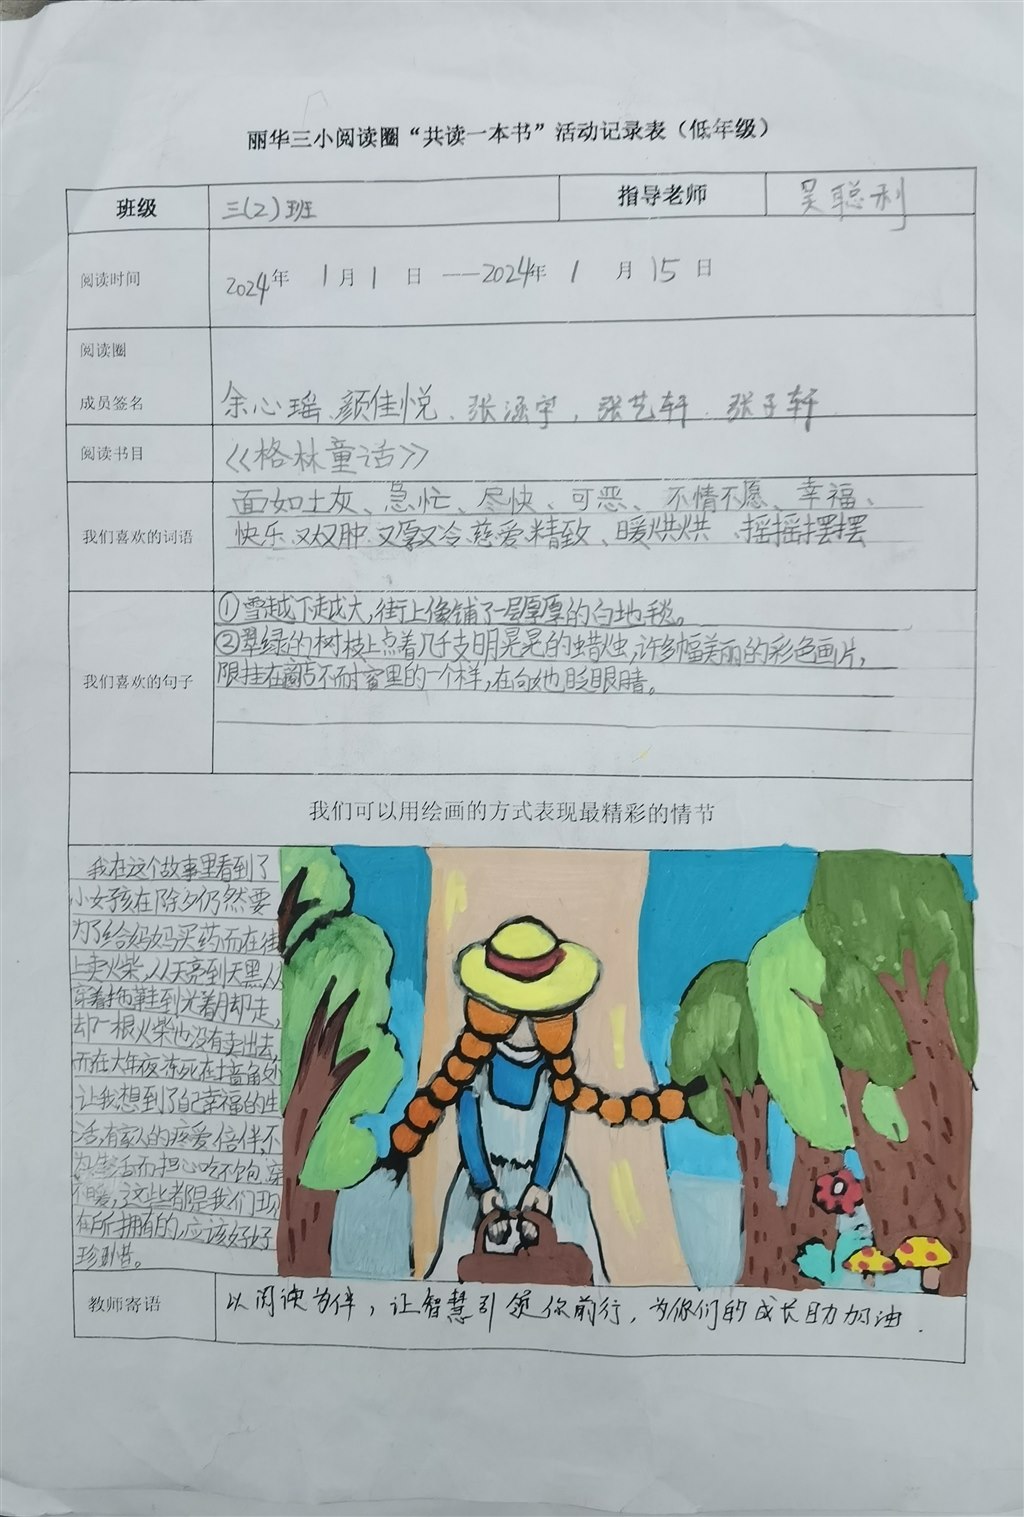 丽华三小阅读圈“共读一本书”活动记录表（低年级）
班级 三(2)班 指导老师 吴聪利
阅读时间 2024年 1月1 日 ——2024年 1 月 15 日
阅读圈
成员签名 余心瑶、颜佳悦、张涵宇，张艺轩、张子轩
阅读书目 《格林童话》
面如土灰、急忙、尽快、可恶、不情不愿、幸福、
我们喜欢的词语 快乐、又红又肿、又厚又冷、慈爱、精致、暖烘烘、摇摇摆摆
①雪越下越大，街上像铺了一层厚厚的白地毯。
②翠绿的树枝上点着几千支明晃晃的蜡烛，许多幅美丽的彩色画片，
我们喜欢的句子 跟挂在商店不耐窗里的一个样，在向她眨眼睛。
我们可以用绘画的方式表现最精彩的情节
我在这个故事里看到了
小女孩在除夕仍然要
为了给妈妈买药而在街
上卖火柴，从天亮到天黑，从
穿着拖鞋到光着脚走，
却一根火柴也没有卖出去，
而在大年夜冻死在墙角处
让我想到了自己幸福的生
活，有家人的疼爱、陪伴，不
为生活而担心吃不饱、穿
不暖，这些都是我们现
在所拥有的，应该好好
珍惜。
教师寄语 以阅读为伴，让智慧引领你前行，为你们的成长助力加油.